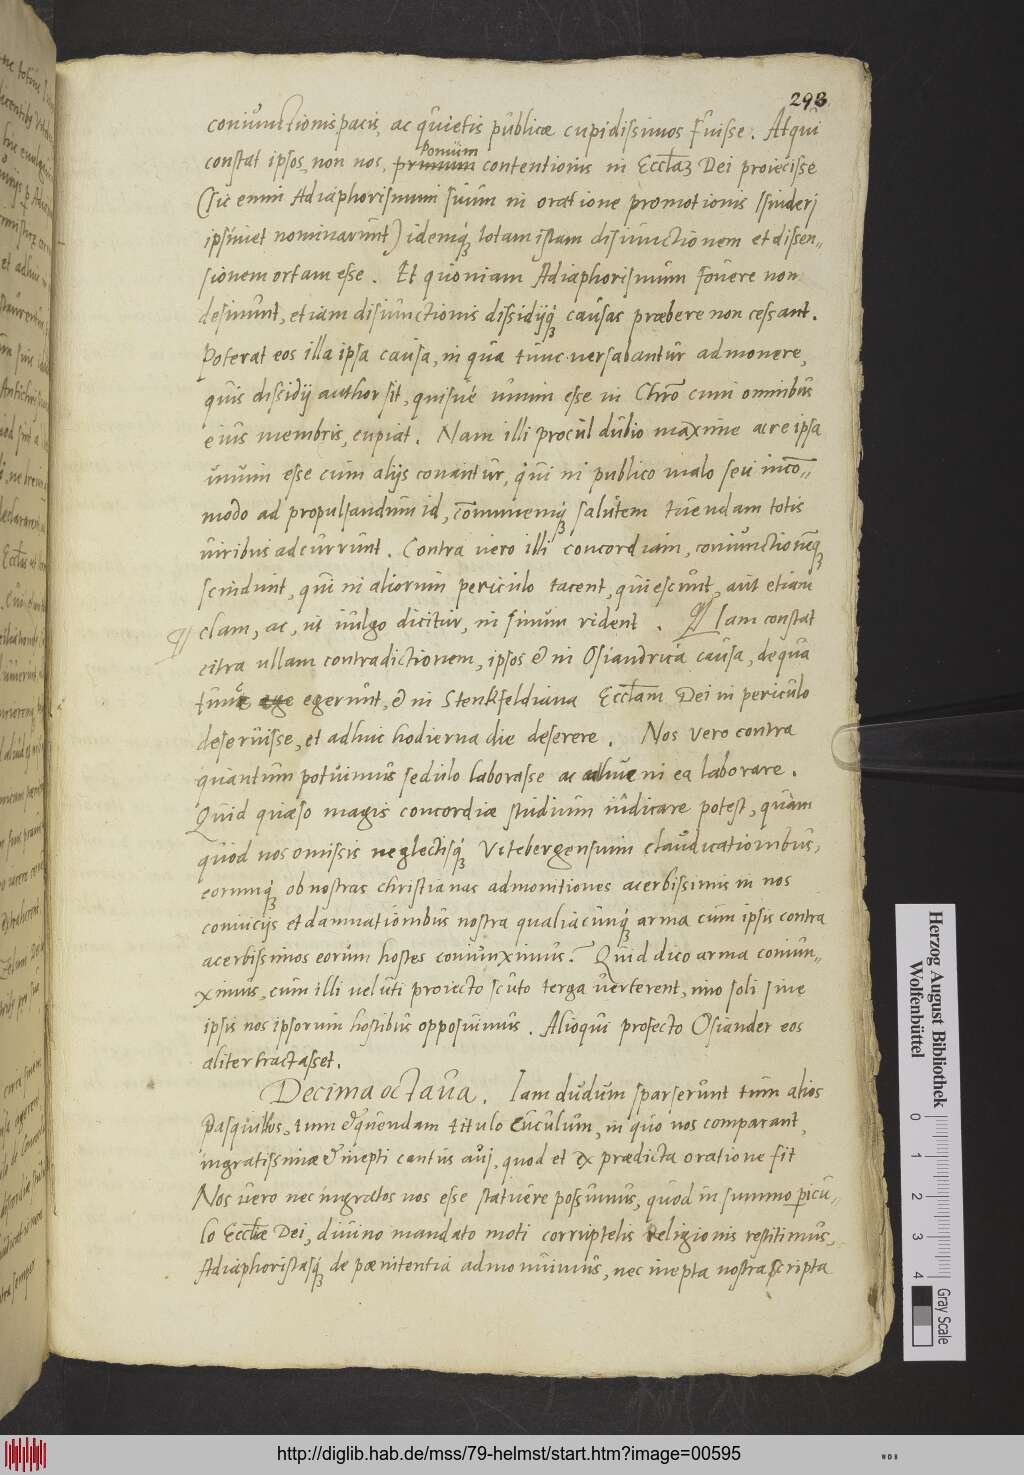 298
coniunctionis pacis, ac quietis publicæ cupidissimos fuisse. Atqui
constat ipsos, non nos, primum Pomum contentionis in Eccl̃aȝ Dei proiecisse
(sic enim Adiaphorismum suum in oratione promotionis Isinderj
ipsimet nominarunt) idemq́ȝ totam istam disiunctionem et dissen„
sionem ortam esse. Et quoniam Adiaphorismum fouere non
desinunt, etiam disiunctionis dissidijq́ȝ causas præbere non cessant.
Poterat eos illa ipsa causa, in qua tunc versabantur admonere,
quis dissidij author sit, quisué unum esse in Chr̃o cum omnibus
eius membris, cupiat. Nam illi procul dubio maxime ac re ipsa
unum esse cum alijs conantur, qui in publico malo seu incõ„
modo ad propulsandum id, cõmunemq́ȝ salutem tuendam totis
uiribus adcurrunt. Contra uero illi concordiam, coniunctionẽq́ȝ
scindunt, qui in aliorum periculo tacent, quiescunt, aut etiam
clam, ac, ut uulgo dicitur, in sinum rident. ¶ Iam constat
citra ullam contradictionem, ipsos & in Osiandrica causa, de qua
tunc ege egerunt, & in Stenkfeldiana Eccl̃am Dei in periculo
deseruisse, et adhuc hodierna die deserere. Nos vero contra
quantum potuimus sedulo laborasse ac adhuc in ea laborare.
Quid quæso magis concordiæ studium iudicare potest, quàm
quod nos omissis neglectisq́ȝ Vitebergensium claudicationibus,
eorumq́ȝ ob nostras christianas admonitiones acerbissimis in nos
conuicijs et damnationibus nostra qualiacunq́ȝ arma cum ipsis contra
acerbissimos eorum hostes coniunximus? Quid dico arma coniun„
ximus, cum illi ueluti proiecto scuto terga uerterent, imo soli sine
ipsis nos ipsorum hostibus opposuimus. Alioqui profecto Osiander eos
aliter tractasset.
Decima octaua. Iam dudum sparserunt tum alios
Pasquillos, tum & quendam titulo Cuculum, in quo nos comparant,
ingratissimæ & inepti cantus auj, quod et ex prædicta oratione fit
Nos uero nec ingratos nos esse statuere possumus, quod in summo pericu„
lo Eccl̃iæ Dei, diuino mandato moti corruptelis religionis restitimus,
Adiaphoristasq́ȝ de pænitentia admonuimus, nec inepta nostra scripta
Herzog August Bibliothek
Wolfenbüttel
0 1 2 3 4
Gray Scale
http://diglib.hab.de/mss/79-helmst/start.htm?image=00595